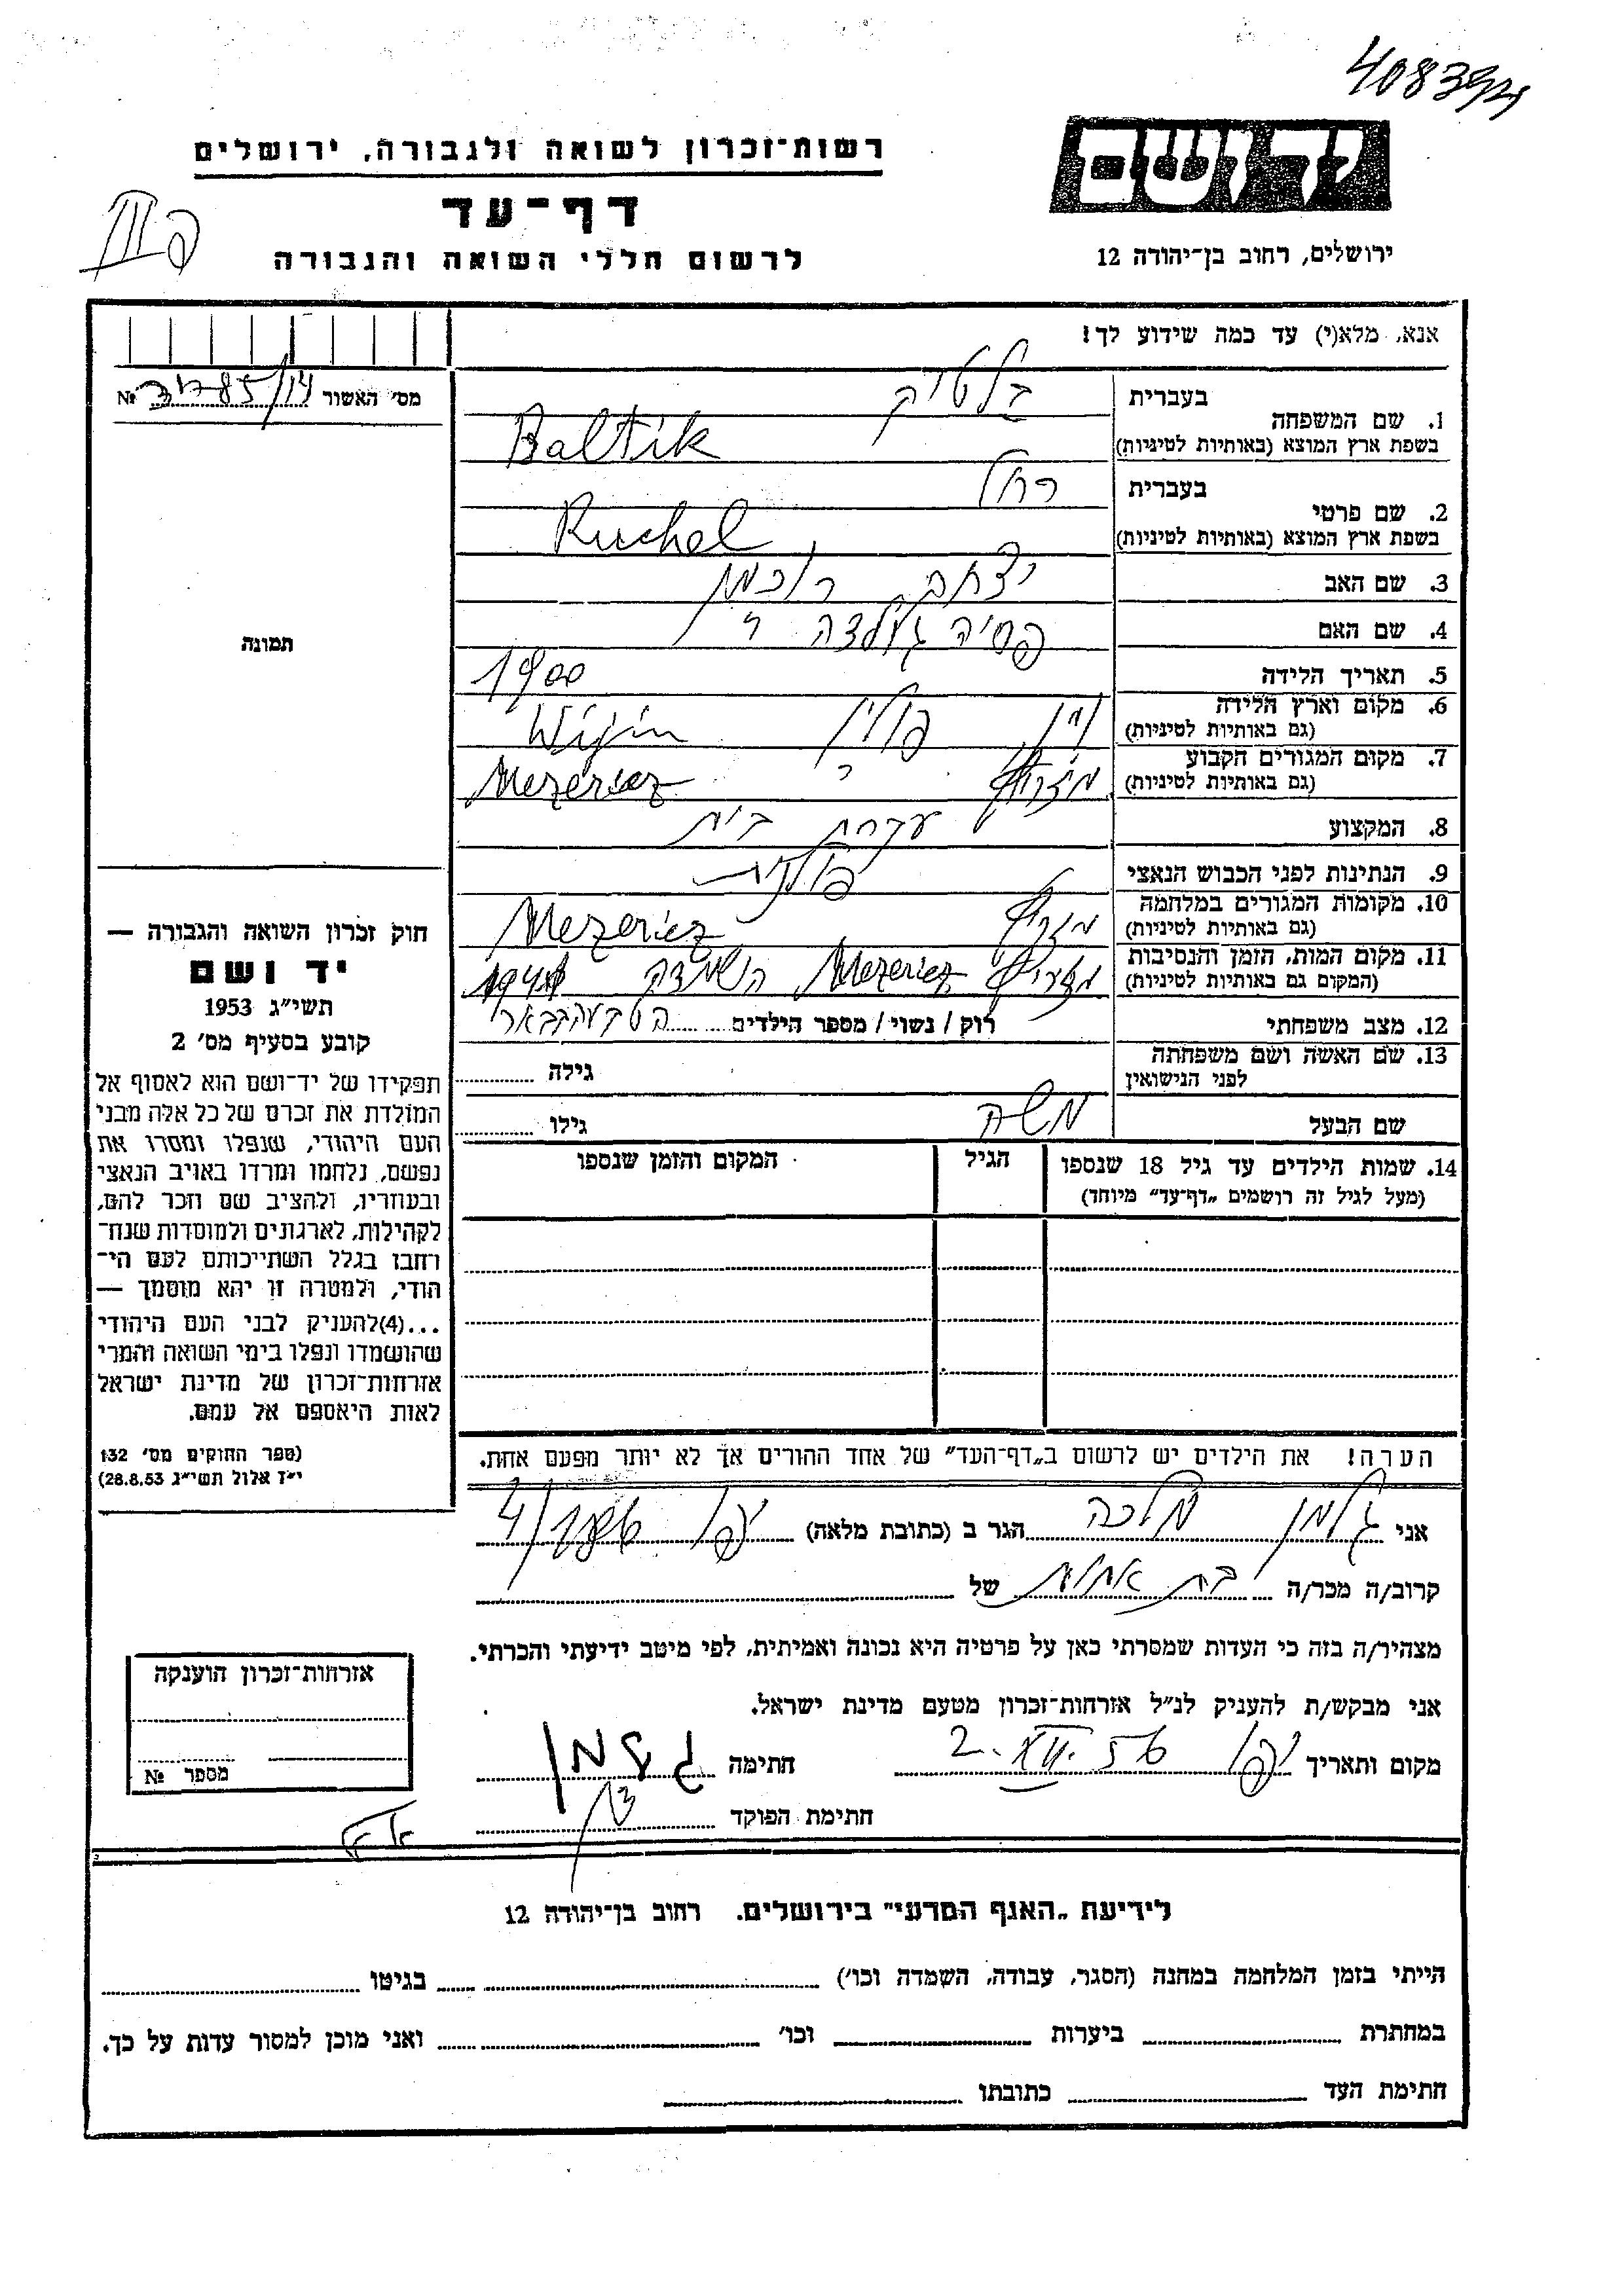 408394
רשות־זכרון לשואה ולגבורה, ירושלים
דף־עד
לרשום חללי השואה והגבורה
יד ושם
ירושלים, רחוב בן־יהודה 12
אנא, מלא(י) עד כמה שידוע לך!
מס׳ האשור №
1. שם המשפחה
בעברית בלטיק
בשפת ארץ המוצא (באותיות לטיניות) Baltik
2. שם פרטי
בעברית רחל
בשפת ארץ המוצא (באותיות לטיניות) Ruchel
3. שם האב יצחק
4. שם האם פסיה
5. תאריך הלידה 1900
6. מקום וארץ הלידה
(גם באותיות לטיניות) פולין
7. מקום המגורים הקבוע
(גם באותיות לטיניות) מזריץ Mezericz
8. המקצוע עקרת בית
9. הנתינות לפני הכבוש הנאצי פולנית
10. מקומות המגורים במלחמה
(גם באותיות לטיניות) מזריץ Mezericz
11. מקום המות, הזמן והנסיבות
(המקום גם באותיות לטיניות) מזריץ Mezericz השמדה
12. מצב משפחתי רוק / נשוי / מספר הילדים
13. שם האשה ושם משפחתה
לפני הנישואין גילה
שם הבעל משה גילו
14. שמות הילדים עד גיל 18 שנספו הגיל המקום והזמן שנספו
(מעל לגיל זה רושמים „דף־עד” מיוחד)
הערה! את הילדים יש לרשום ב„דף־העד” של אחד ההורים אך לא יותר מפעם אחת.
תמונה
חוק זכרון השואה והגבורה —
יד ושם
תשי״ג 1953
קובע בסעיף מס׳ 2
תפקידו של יד־ושם הוא לאסוף אל
המולדת את זכרם של כל אלה מבני
העם היהודי, שנפלו ומסרו את
נפשם, נלחמו ומרדו באויב הנאצי
ובעוזריו, ולהציב שם וזכר להם,
לקהילות, לארגונים ולמוסדות שנח־
רחבו בגלל השתייכותם לעם הי־
הודי, ולמטרה זו יהא מוסמך —
...(4)להעניק לבני העם היהודי
שהושמדו ונפלו בימי השואה והמרי
אזרחות־זכרון של מדינת ישראל
לאות היאספם אל עמם.
(ספר החוקים מס׳ 132
י״ז אלול תשי״ג 28.8.53)
אני מלכה הגר ב (כתובת מלאה) יפו
קרוב/ה מכר/ה בת אחות של
מצהיר/ה בזה כי העדות שמסרתי כאן על פרטיה היא נכונה ואמיתית, לפי מיטב ידיעתי והכרתי.
אני מבקש/ת להעניק לנ״ל אזרחות־זכרון מטעם מדינת ישראל.
מקום ותאריך יפו 2.XII.56 חתימה
חתימת הפוקד
אזרחות־זכרון הוענקה
מספר №
לידיעת „האגף המדעי” בירושלים. רחוב בן־יהודה 12
הייתי בזמן המלחמה במחנה (הסגר, עבודה, השמדה וכו׳) בגיטו
במחתרת ביערות וכו׳ ואני מוכן למסור עדות על כך.
חתימת העד כתובתו